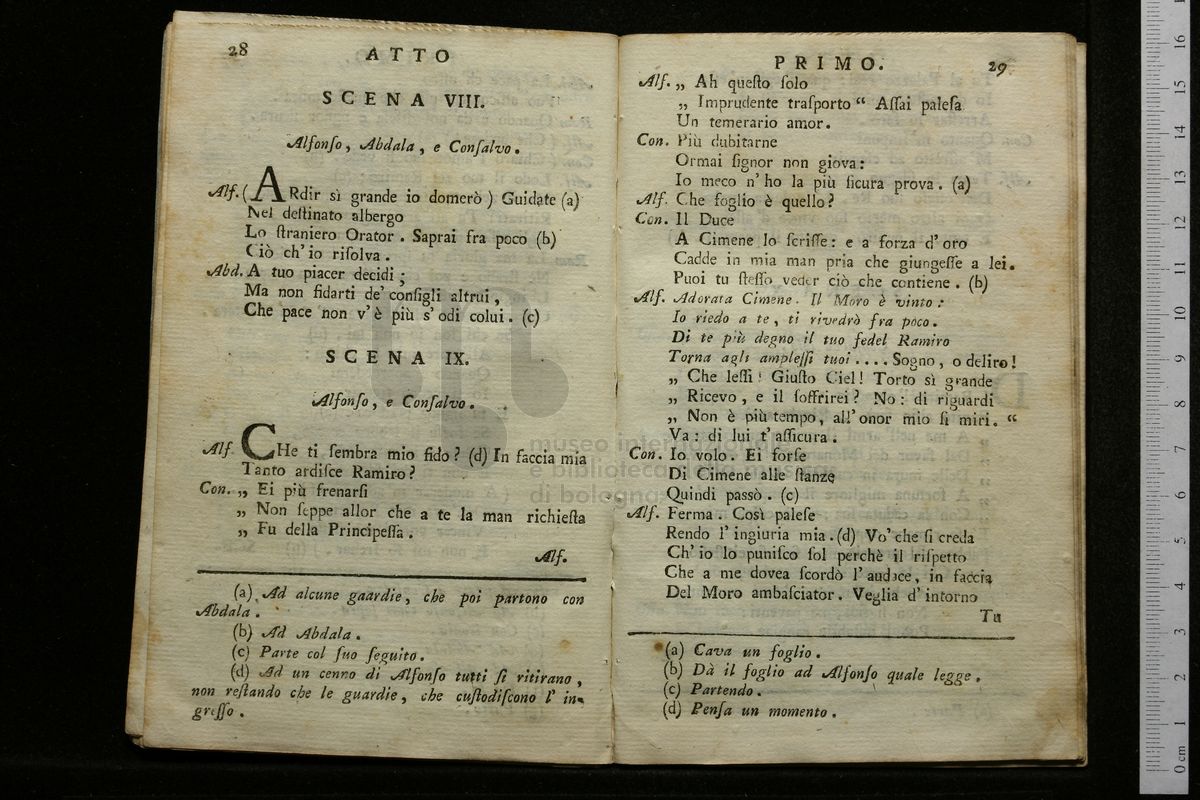 28
ATTO
SCENA VIII.
Alfonſo, Abdala, e Conſalvo.
Alf. ( ARdir sì grande io domerò ) Guidate (a)
Nel deſtinato albergo
Lo ſtraniero Orator. Saprai fra poco (b)
Ciò ch' io riſolva.
Abd. A tuo piacer decidi;
Ma non fidarti de' conſigli altrui,
Che pace non v' è più s' odi colui. (c)
SCENA IX.
Alfonſo, e Conſalvo.
Alf. CHe ti ſembra mio fido? (d) In faccia mia
Tanto ardiſce Ramiro?
Con. „ Ei più frenarſi
„ Non ſeppe allor che a te la man richieſta
„ Fu della Principeſſa.
Alf.
(a) Ad alcune gaardie, che poi partono con
Abdala.
(b) Ad Abdala.
(c) Parte col ſuo ſeguito.
(d) Ad un cenno di Alfonſo tutti ſi ritirano,
non reſtando che le guardie, che cuſtodiſcono l' in-
greſſo.
PRIMO.
29
Alf. „ Ah queſto ſolo
„ Imprudente traſporto “ Aſſai paleſa
Un temerario amor.
Con. Più dubitarne
Ormai ſignor non giova:
Io meco n' ho la più ſicura prova. (a)
Alf. Che foglio è quello?
Con. Il Duce
A Cimene lo ſcriſſe: e a forza d' oro
Cadde in mia man pria che giungeſſe a lei.
Puoi tu ſteſſo veder ciò che contiene. (b)
Alf. Adorata Cimene. Il Moro è vinto:
Io riedo a te, ti rivedrò fra poco.
Di te più degno il tuo fedel Ramiro
Torna agli ampleſſi tuoi.... Sogno, o deliro!
„ Che leſſi! Giuſto Ciel! Torto sì grande
„ Ricevo, e il ſoffrirei? No: di riguardi
„ Non è più tempo, all' onor mio ſi miri. “
Va: di lui t' aſſicura.
Con. Io volo. Ei forſe
Di Cimene alle ſtanze
Quindi paſsò. (c)
Alf. Ferma. Così paleſe
Rendo l' ingiuria mia. (d) Vo' che ſi creda
Ch' io lo puniſco ſol perchè il riſpetto
Che a me dovea ſcordò l' audace, in faccia
Del Moro ambaſciator. Veglia d' intorno
Tu
(a) Cava un foglio.
(b) Dà il foglio ad Alfonſo quale legge.
(c) Partendo.
(d) Penſa un momento.
museo internazionale
e biblioteca della musica
di bologna
0 cm 1 2 3 4 5 6 7 8 9 10 11 12 13 14 15 16